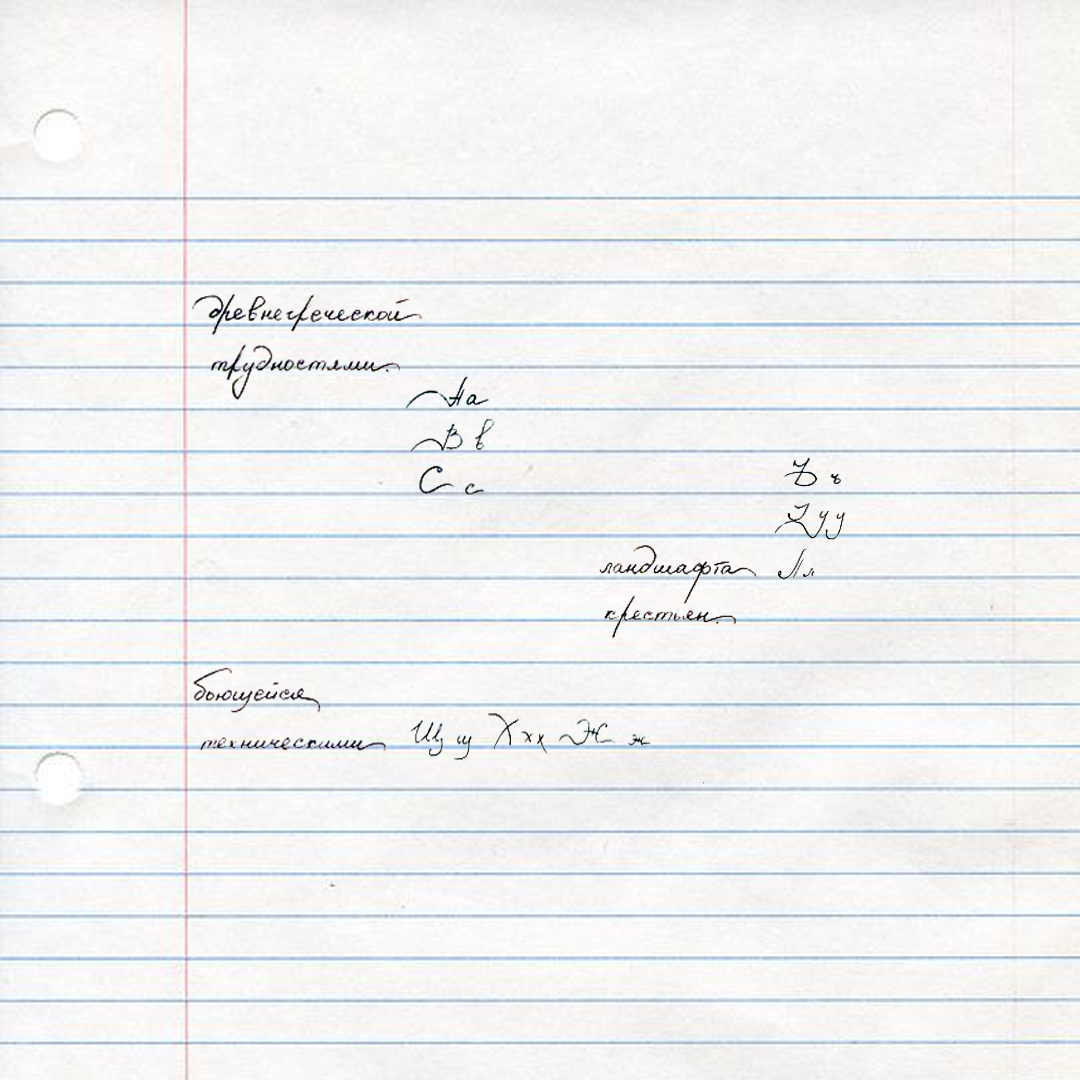 древнегреческой
трудностями
А а
В в
С с
Ъ ъ
У у у
ландшафта Л л
крестьян
боющейся
техническими Щ щ Х х х Ж ж